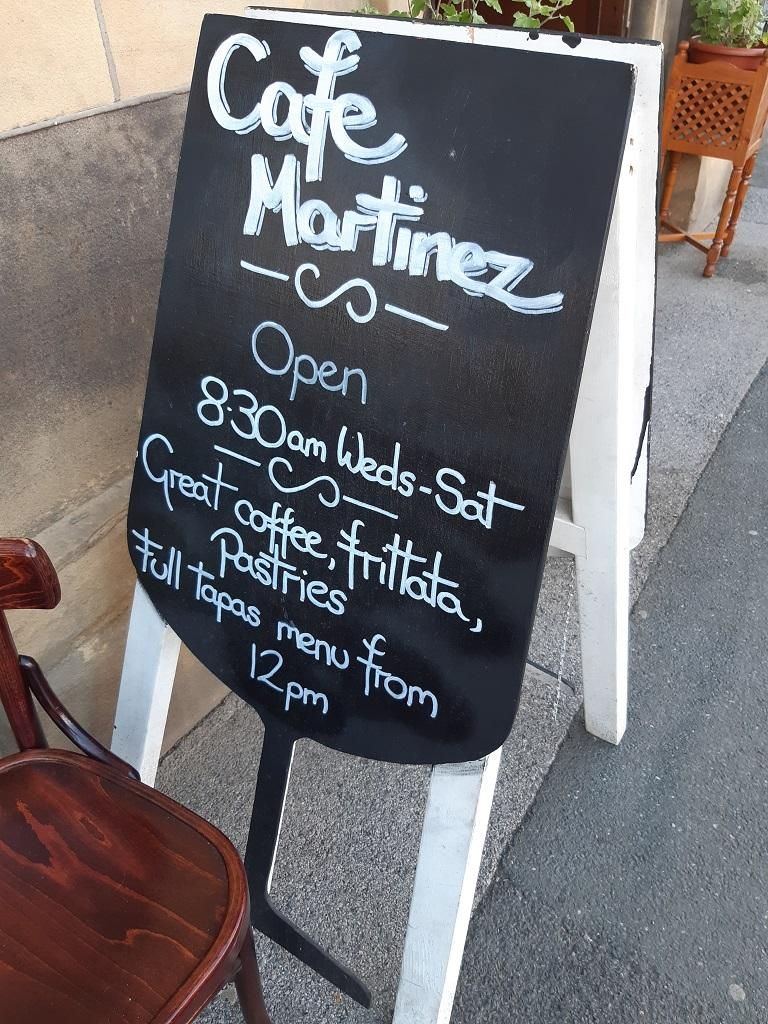 Cafe
Martinez
Open
8.30am Weds-Sat
Great coffee, frittata,
Pastries
Full tapas menu from
12pm